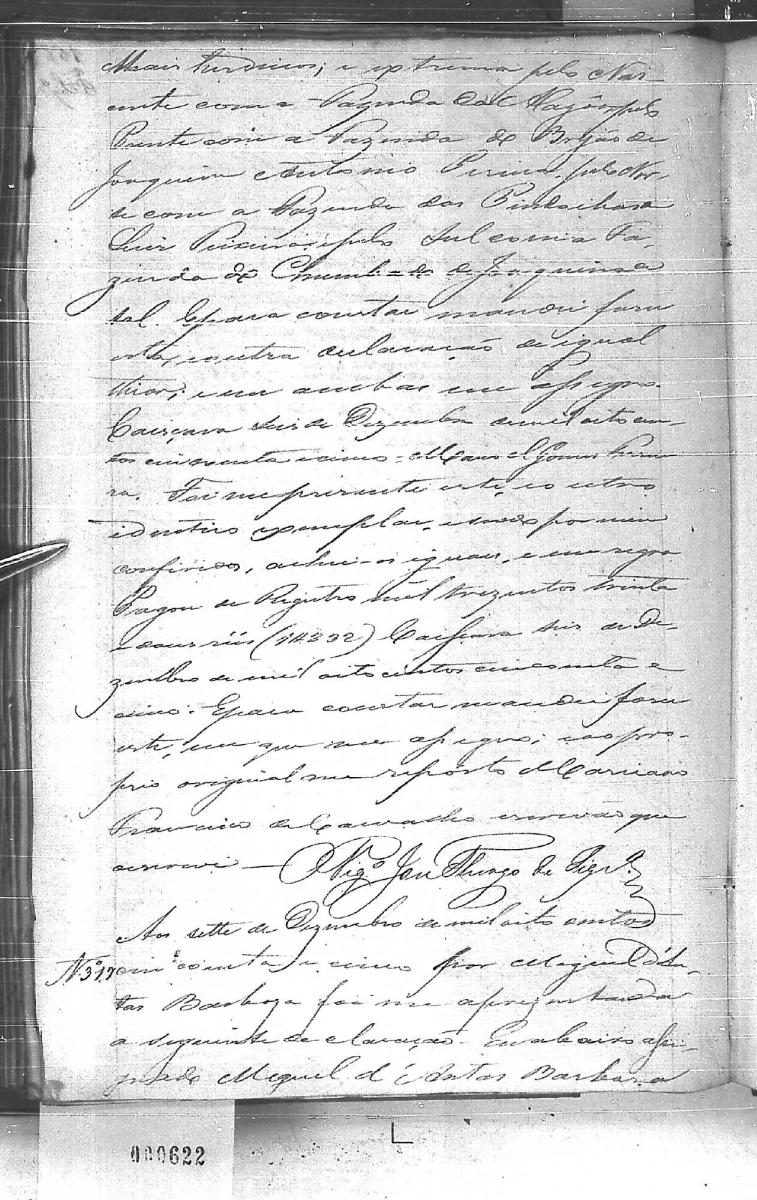 Mais terrenos; e extrema pelo Nas-
cente com a Fazenda da Nação, pelo
Poente com a Fazenda do Brejão de
Joaquim Antonio Pereira, pelo Nor-
te com a Fazenda das Pindaibas a
Luis Pereira, e pelo Sul com a Fa-
zenda do Chumbado de Joaquim
tal. E para constar mandei fazer
esta, e outra declaração de igual
theor; e em ambas me assigno.
Caissara seis de Dezembro de mil oito cen-
tos cincoenta e cinco = Manoel Gomes Ferrei-
ra. Foi me presente este, e o outro
identico exemplar, e sendo por mim
conferidos, achei-os iguaes, e me assigno
Pagou de Registro mil trezentos trinta
e dous réis (1$332) Caissara seis de De-
zembro de mil oito centos cincoenta e
cinco. E para constar mandei fazer
este, em que me assigno; e ao pro-
prio original me reporto Marciano
Francisco de Carvalho escrivão que
escrevi — O Vigº José de
Aos sette de Dezembro de mil oito centos
Nº 317 cincoenta e cinco por Miguel d'An-
tas Barboza foi me aprezentada
a seguinte declaração. Eu abaixo assi-
gnado Miguel d'Antas Barboza
000622